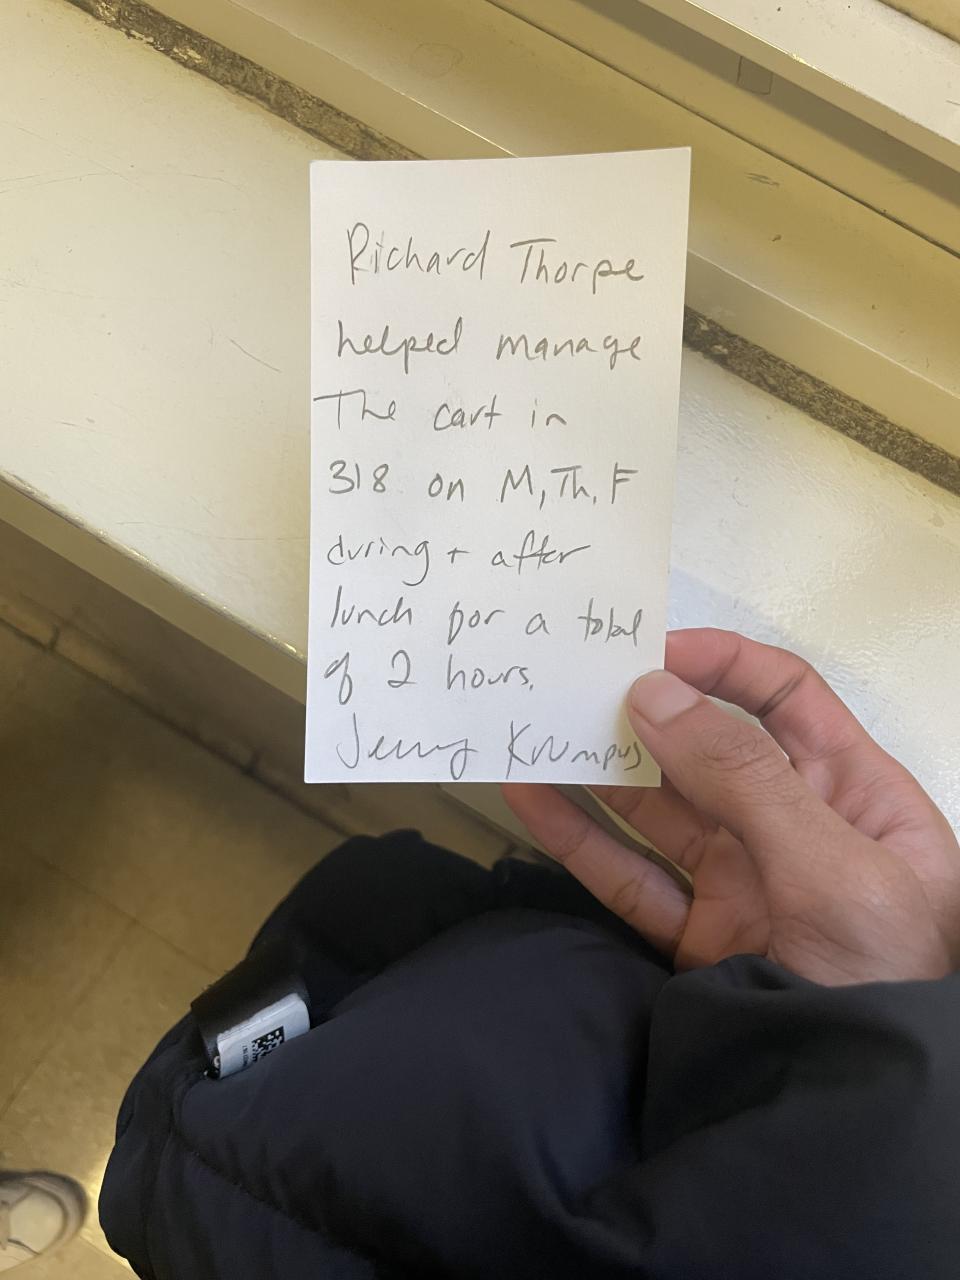 Richard Thorpe
helped manage
The cart in
318 on M, Th, F
during + after
lunch for a total
of 2 hours.
Jerry Krumpus